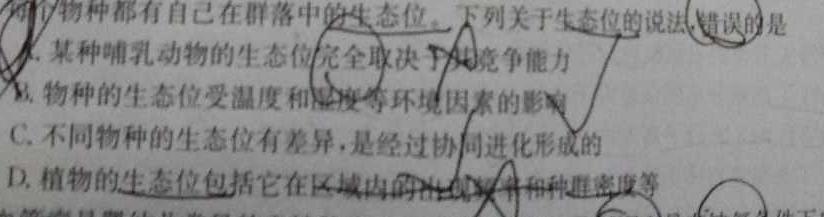 每个物种都有自己在群落中的生态位。下列关于生态位的说法,错误的是
A. 某种哺乳动物的生态位完全取决于其竞争能力
B. 物种的生态位受温度和湿度等环境因素的影响
C. 不同物种的生态位有差异,是经过协同进化形成的
D. 植物的生态位包括它在区域内的出现频率和种群密度等